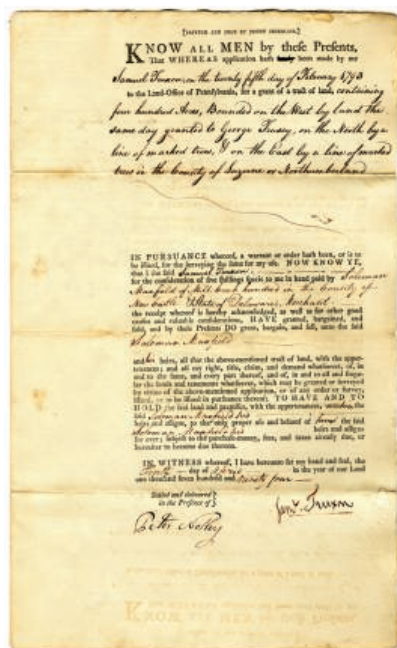 [PRINTED AND SOLD BY
KNOW ALL MEN by these Presents,
That WHEREAS application hath been made by me
Samuel Truxon, on the twenty fifth day of February 1793
to the Land-Office of Pennsylvania, for a grant of a tract of land, containing
four hundred Acres, Bounded on the West by land the
same day granted to George on the North by a
line of marked trees, & on the East by a line of marked
trees in the County of Luzerne or Northumberland
IN PURSUANCE whereof, a warrant or order hath been, or is to
be issued, for the surveying the same for my use. NOW KNOW YE,
that I the said Samuel Truxon
for the consideration of five shillings specie to me in hand paid by Solomon
Maxfield of Mill Creek hundred in the County of
New Castle & State of Delaware, Merchant
the receipt whereof is hereby acknowledged, as well as for other good
causes and valuable considerations, HAVE granted, bargained, and
sold, and by these Presents DO grant, bargain, and sell, unto the said
Solomon Maxfield
and his heirs, all that the above-mentioned tract of land, with the appur-
tenances; and all my right, title, claim, and demand whatsoever, of, in
and to the same, and every part thereof, and of, in and to all and singu-
lar the lands and tenements whatsoever, which may be granted or surveyed
by virtue of the above-mentioned application, or of any order or survey,
issued, or to be issued in pursuance thereof: TO HAVE AND TO
HOLD the said land and premises, with the appurtenances, unto the
said Solomon Maxfield his
heirs and assigns, to the only proper use and behoof of him the said
Solomon Maxfield his heirs and assigns
for ever; subject to the purchase-money, fees, and taxes already due, or
hereafter to become due thereon.
IN WITNESS whereof, I have hereunto set my hand and seal, the
day of in the year of our Lord
one thousand seven hundred and ninety four
Sealed and delivered
in the Presence of
Truxon
Peter